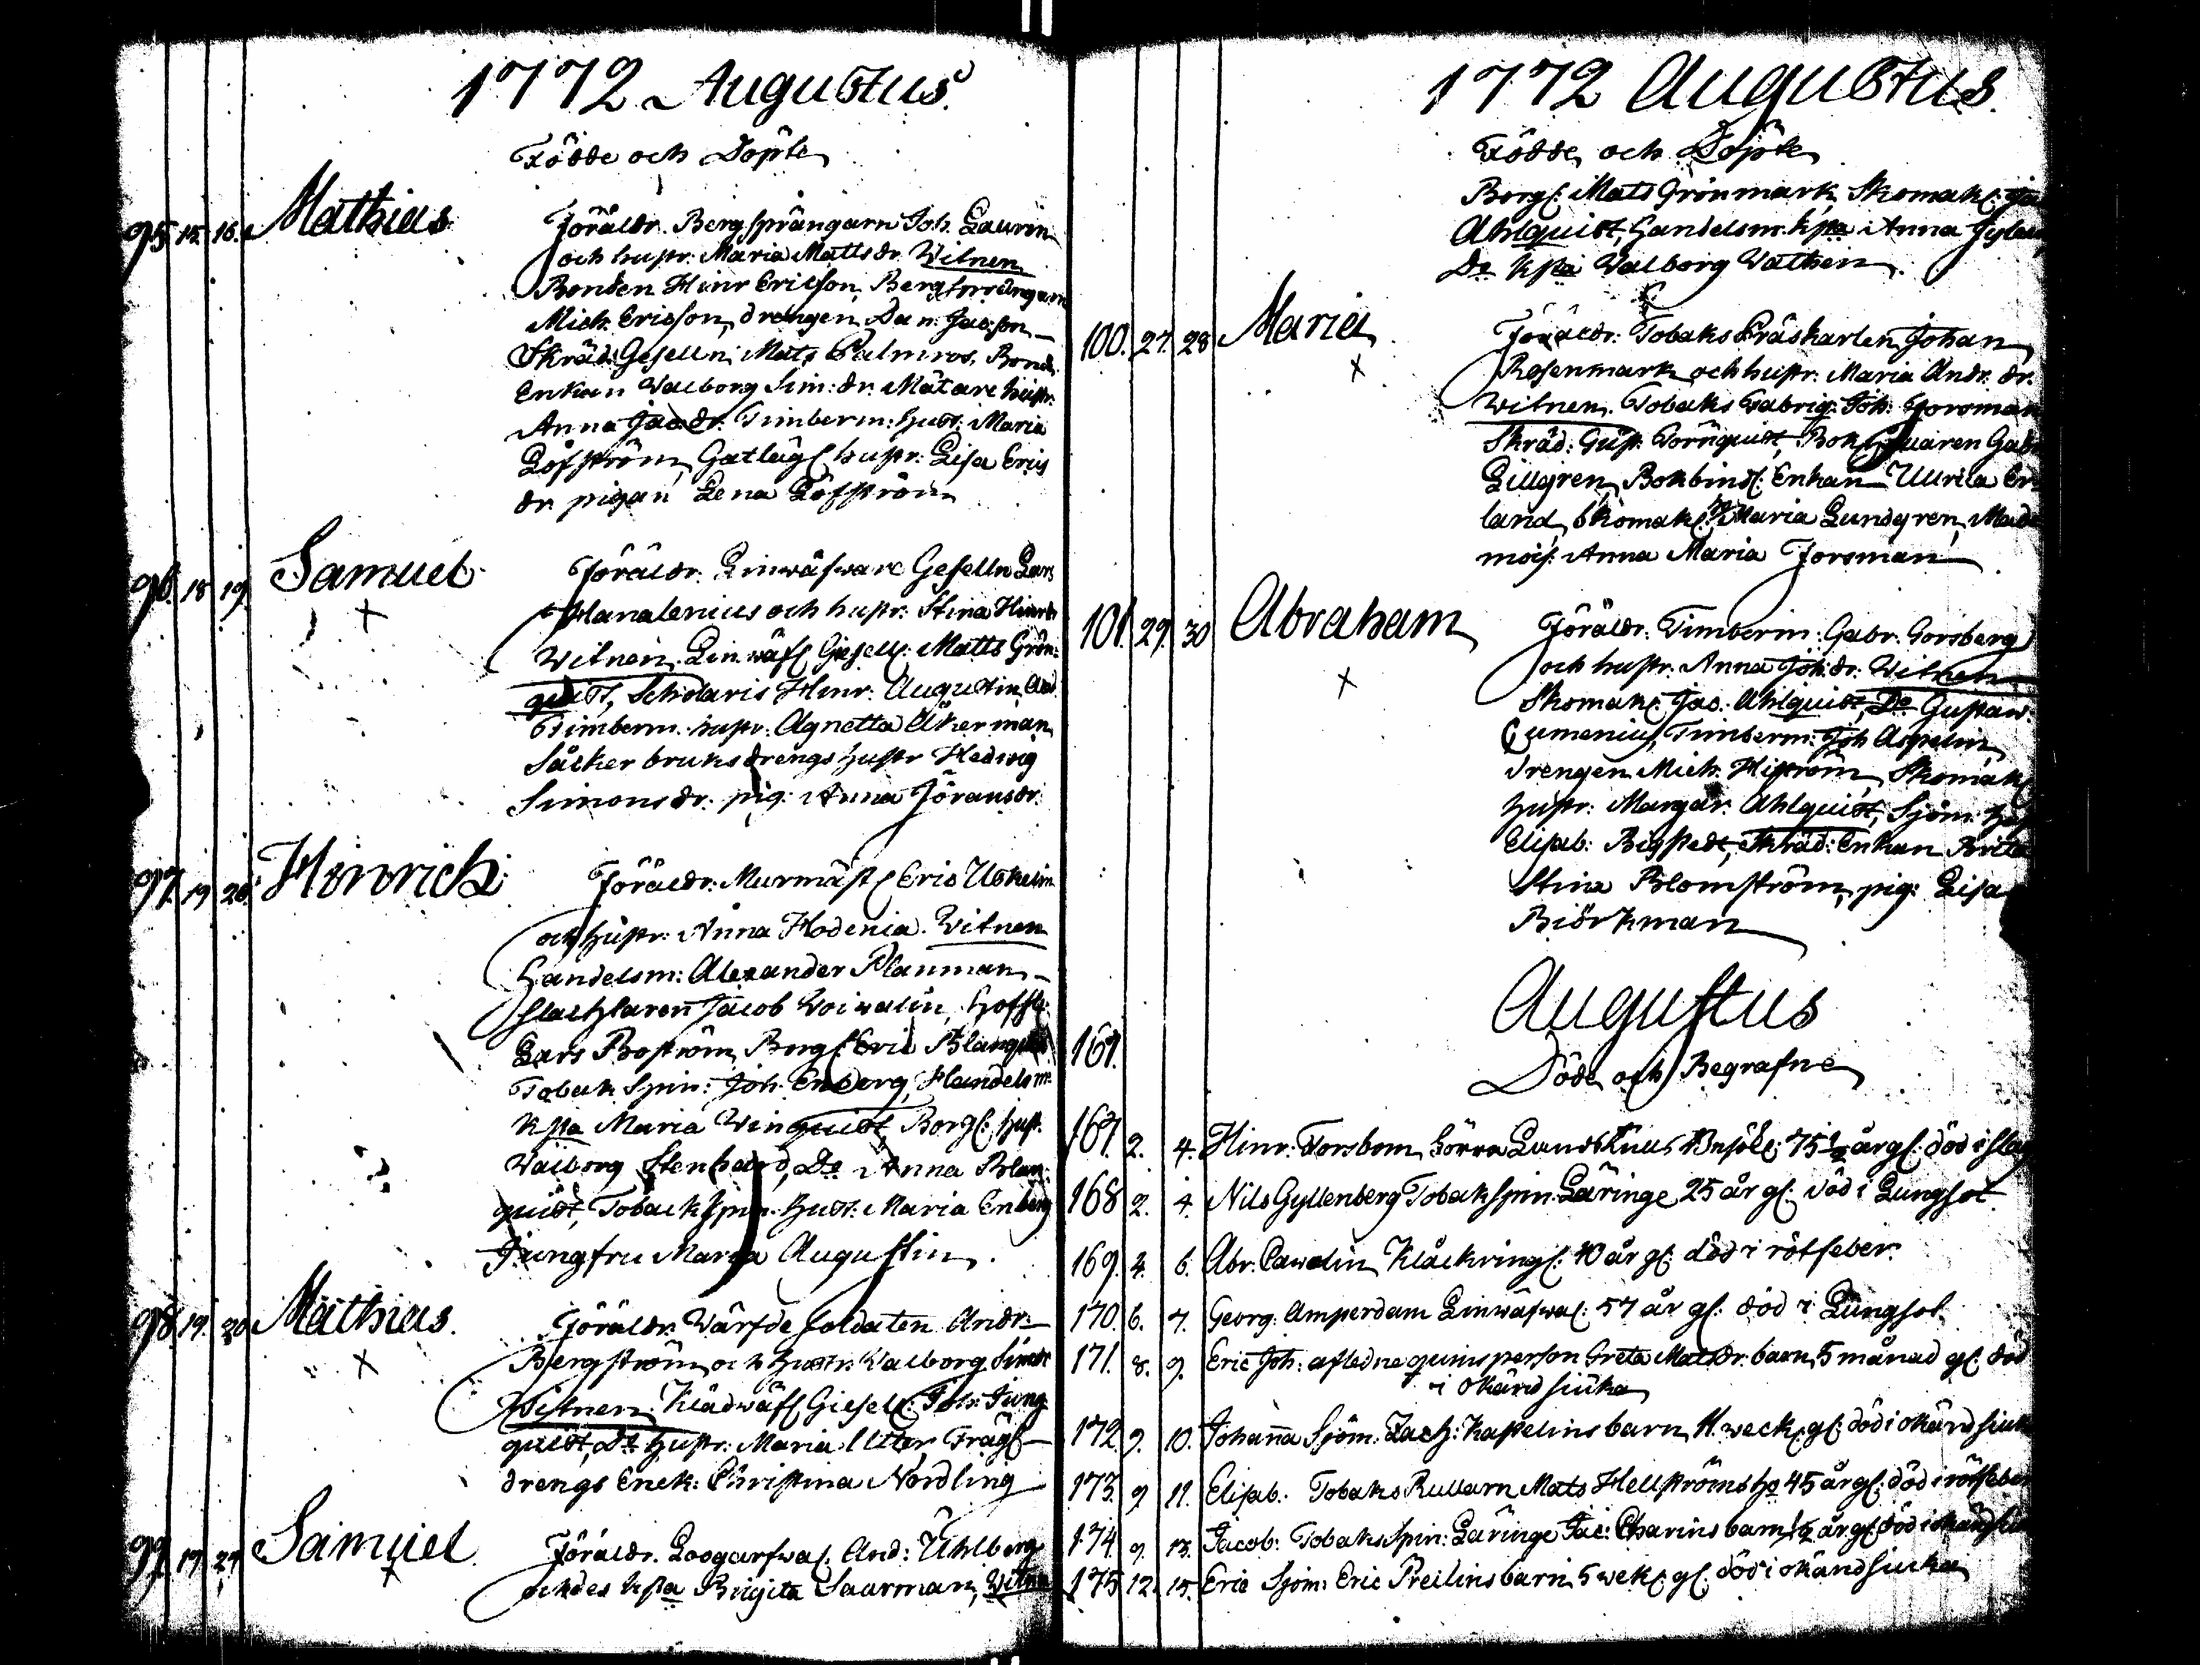 1772 Augustus
Födde och Döpte
95 15. 16. Mathias
Föräldr. Bergsprängarn Joh. Laurin
och hustr. Maria Matts dr. Witnen
Bonden Hinr Ericsson, Bergsprängarn
Mich. Ericsson, drengen Dan. Jacsson
Skräd: Gesellen Mats Palmros, Bond.
Enkan Walborg Sim: dr. Mätare hustr.
Anna Jac. dr. Timberm: hust: Maria
Löfström, hustr: Lisa Erics
dr pigan Lena Löfström
96. 18 19. Samuel
Föräldr. Linwäfware Geselln Lars
Hanalenius och hustr: Stina Hinrs.
Witnen. Linwäf. Gesell. Matts Grön-
quist, Scholaris Hinr: Augustin
Timberm. hustr. Agnetta Åkerman
Såcker bruks drengs hustr Hedwig
Simons dr. pig: Anna Jörans dr.
97. 19 20. Hinrich
Föräldr: Murmäst. Eric
och hustr: Anna Hodenia. Witnen
Handelsm: Alexander Planman
Slachtaren Jacob Woiwalin,
Lars Boström, Borg. Eric Blanquist
Tobak Spin: Joh. Enberg, Handelsm:
Maria Winquist, Borg. hust.
Walborg Stenhard, Do Anna Blan
quist, Tobackspin. Hust: Maria Enberg
Jungfru Maria Augustin.
98. 19. 20 Mathias.
Föräldr. Wärfde soldaten Andr:
Bergström och hustr. Walborg Simdr
Witnen. Klädwäf Giesell. Joh. Jung
quist, Do hustr: Maria Utter
drengs Enck: Christina Nordling
99. 19. 21 Samuel
Föräldr. And: Uhlberg
och des Birgita Saurman, Witne
1772 Augustus.
Födde och Döpte
Borg: Mats Grönmark, Skomak:
Ahlquist, Handelsm. Anna
Do Walborg Wathen.
100. 27. 28 Maria
Föräldr: Tobaks Präskarlen Johan
Rosenmark och hustr: Maria Andr. dr.
Witnen. Tobaks Fabriq: Joh: Forsman
Skräd: Gust. Törnquist,
Lillgren, Bokbind: Enkan Ulrica
land, Skomak. Maria Lundgren, Made
mois: Anna Maria Forsman
101. 29. 30 Abraham
Föräldr: Timberm: Gabr. Forsberg
och hustr. Anna Joh: dr. Witnen
Skomak: Jac. Ahlquist, Do Gustaw.
Cumenius, Timberm: Joh Aspelin,
drengen Mich. Skomak
hustr: Margar. Ahlquist, Sjöm:
Elisab: Bigstedt, Skräd: Enkan Brita
Stina Blomström, pig: Lisa
Biörkman
Augustus
161.
Döde och Begrafne
167. 2. 4. Hinr: Forsbom 75 1/2 år gl. död i slag
168 2. 4. Nils Gyllenberg Tobakspin Läringe 25 år gl. död i Lungsot
169. 4. 6. Abr. Pawolin Klåckring. 40 år gl. död i rötfeber.
170. 6. 7. Georg: Amperdam Linwäfwa: 57 år gl: död i Lungsot
171. 8. 9. Eric Joh: afledne quinsperson Greta Matsdr. barn, 5 månad gl. död
i okänd siuka
172 9. 10. Johanna Sjöm. Zach: Kapelins barn, 11. weck. gl. död i okänd siuk
173. 9 11. Elisab: Tobaks Rullarn Mats Hellströms 45 år gl. död i rötfeber
174. 9. 13. Jacob: Tobaks Spin: Läringe Jac: Charins barn 1/2 år gl. död i okänd siu
175 12. 15. Eric Sjöm: Eric Preilins barn 5 wek. gl. död i okänd siucka